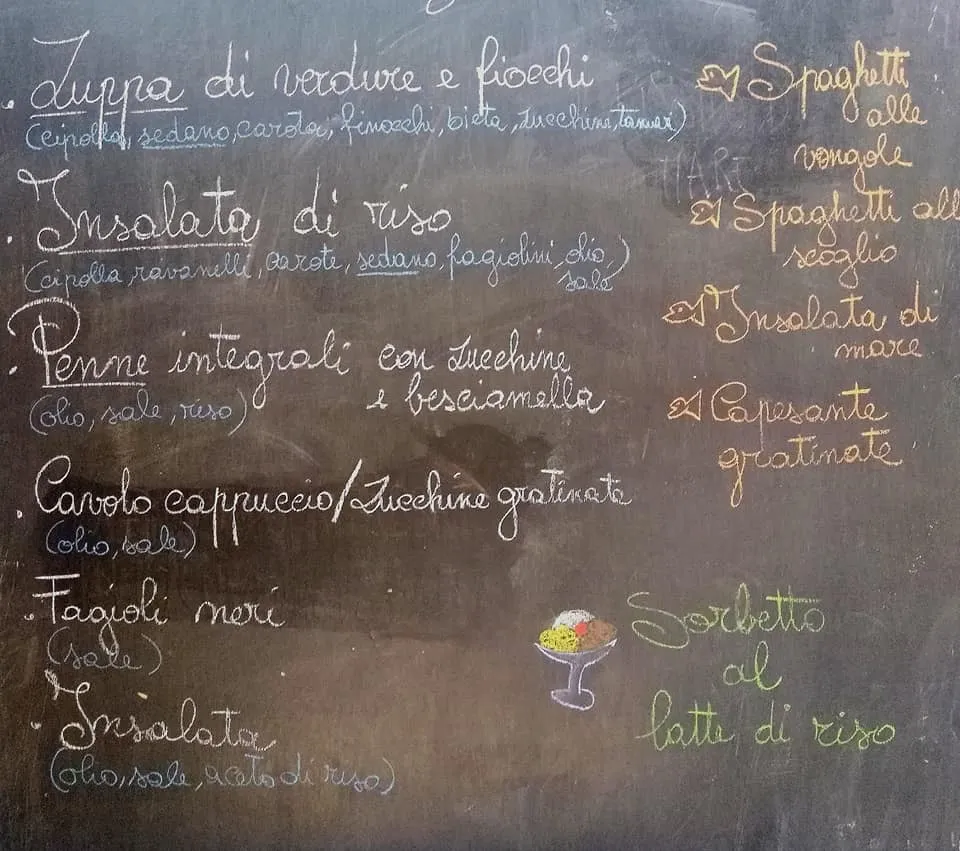 . Zuppa di verdure e fiocchi
(cipolla, sedano, carota, finocchi, bieta, zucchine, tamari)
. Insalata di riso
(cipolla, ravanelli, carote, sedano, fagiolini, olio,
sale)
. Penne integrali con zucchine
e besciamella
(olio, sale, riso)
. Cavolo cappuccio/Zucchine gratinate
(olio, sale)
. Fagioli neri
(sale)
. Insalata
(olio, sale, aceto di riso)
Spaghetti
alle
vongole
Spaghetti all
scoglio
Insalata di
mare
Capesante
gratinate
Sorbetto
al
latte di riso